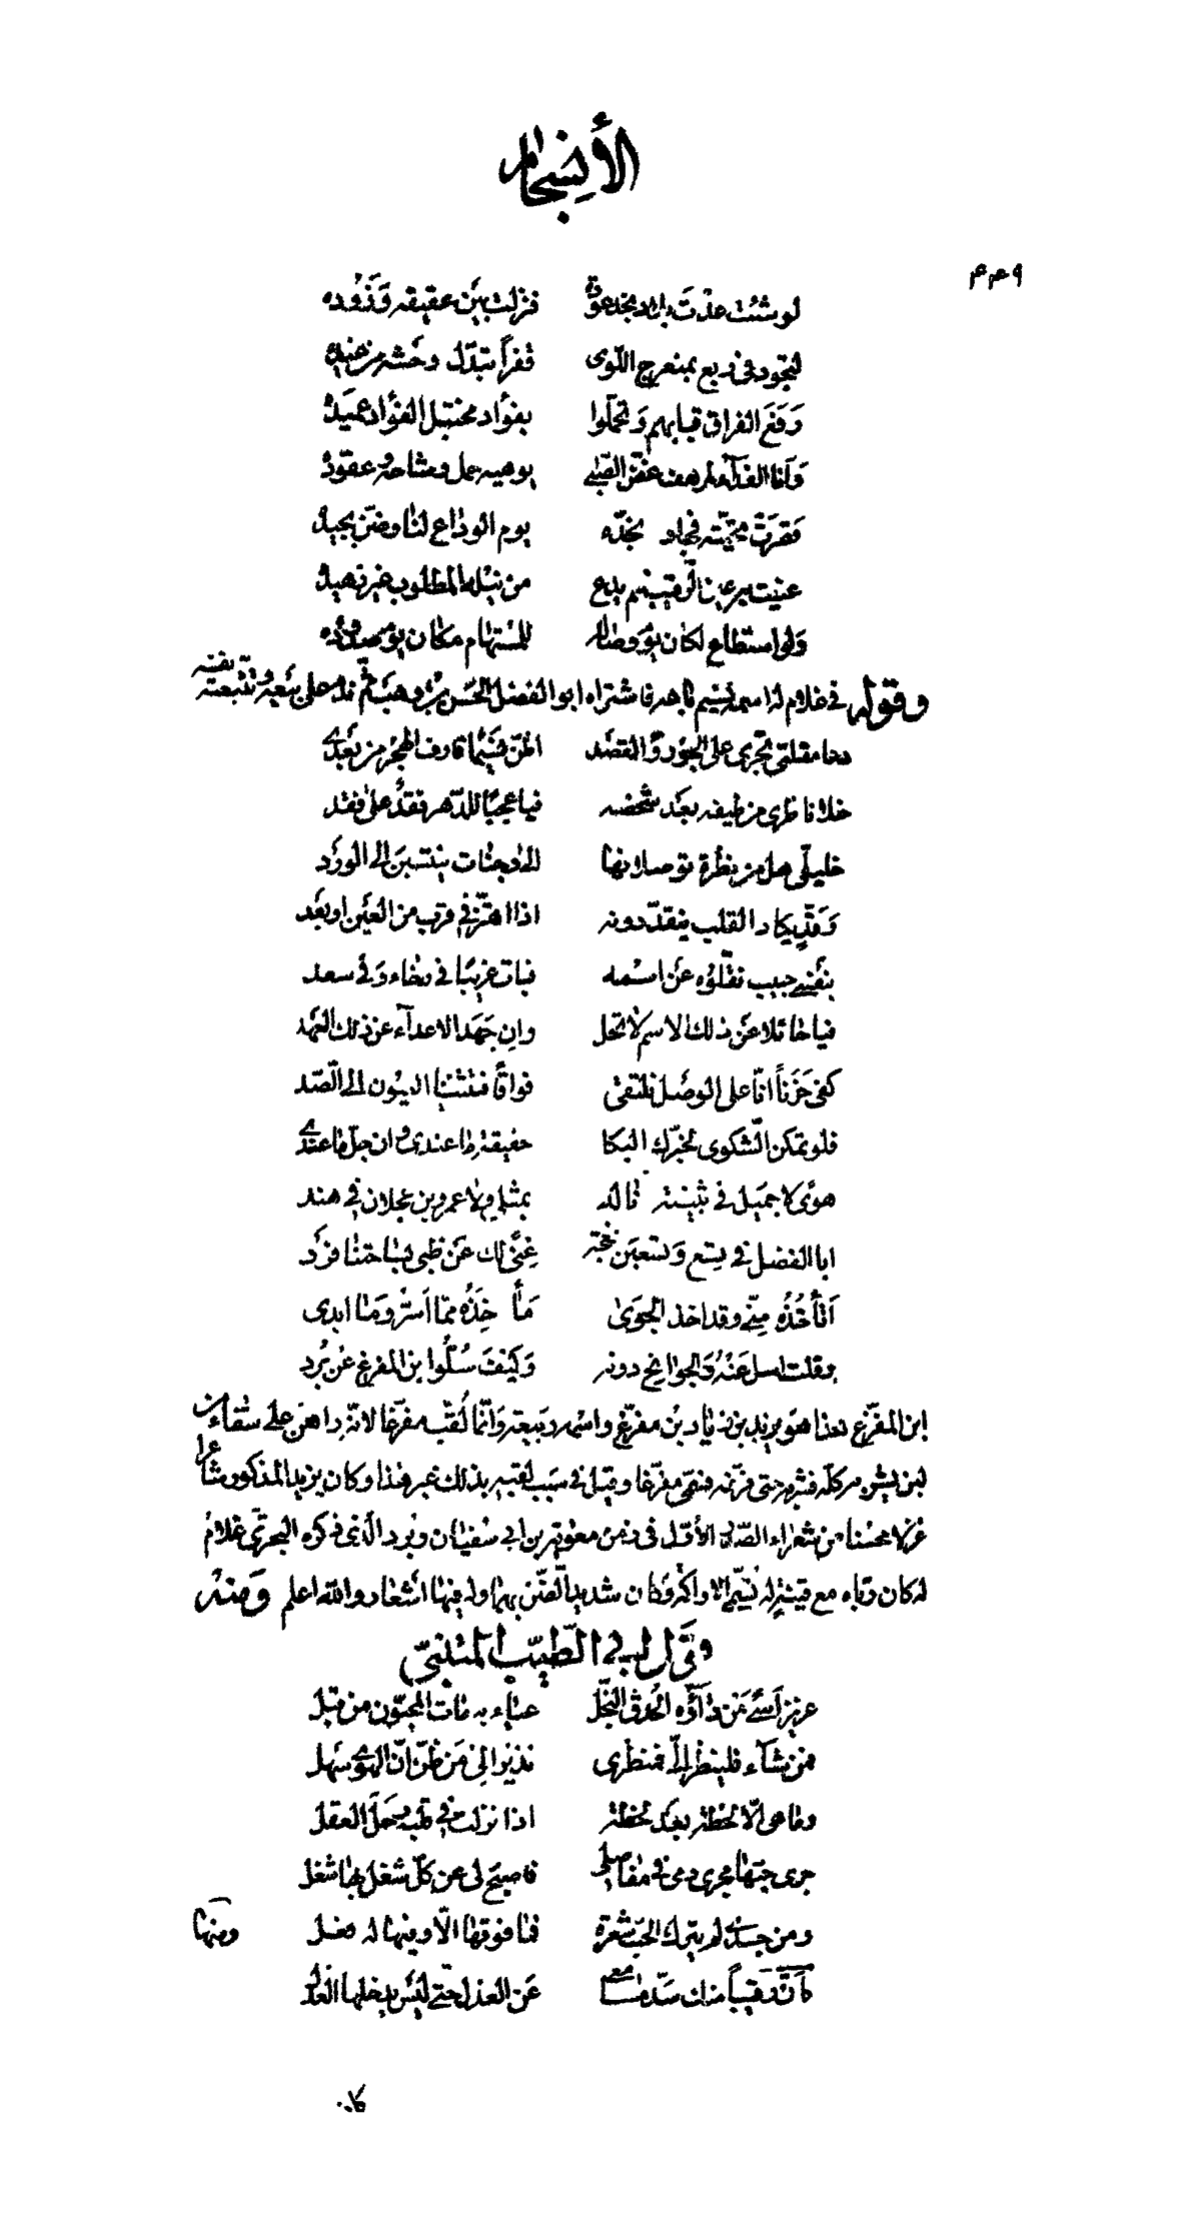 الأنسجام
٤٤٩
لو شئت عدت بلاد نجد عودة فنزلت بين عقيقه وزروده
لتجود في ربع بمنعرج اللوى قفرا تبدل وحشه من غيده
رفع الفراق قبابهم وتحملوا بفؤاد مختبل الفؤاد عميده
وانا الفدآء لمرهف غض الصبى يوهيه حمل وشاحه وعقوده
قصرت تحيته فجاد بخده يوم الوداع لنا وضن بجيده
عنيت به عين الرقيب فلم يدع من نيله المطلوب غير زهيده
ولو استطاع لكان يوم وصاله للمستهام مكان يوم صدوده
وقوله في غلام له اسمه نسيم باعه فاشتراه ابو الفضل الحسن بن وهب ثم ندم على بيعه وتتبعته نفسه
دعا مقلتي تجري على الجور والقصد اظن نسيما قارف الهجر من بعدي
خلا ناظري من طيفه بعد شخصه فيا عجبا للدهر فقد على فقد
خليلي هل من نظرة توصلانها الى وجنات ينتسبن الى الورد
وقد يكاد القلب ينقد دونه اذا اهتز في قرب من العين او بعد
بنفسي حبيب نقلوه عن اسمه فبات غريبا في رخاء وفي سعد
فيا حائلا عن ذلك الاسم لا تحل وان جهد الاعدآء عن ذلك العهد
كفى حزنا انا على الوصل نلتقي فواقا فتثنينا العيون الى الصد
فلو تمكن الشكوى لخبرك البكا حقيقة ما عندي وان جل ما عندي
هوى لا جميل في بثينة ناله بمثل ولا عمرو بن عجلان في هند
ابا الفضل في تسع وتسعين نعجة غنى لك عن ظبي بساحتنا فرد
اتأخذه مني وقد اخذ الجوى مأ خذه مما اسر وما ابدي
وقلت اسل عنه والجوانح دونه وكيف سلوا بن المفرغ عن برد
ابن المفرغ هذا هو يزيد بن زياد بن مفرغ واسمه ربيعة وانما لقب مفرغا لانه راهن على سقاء من
لبن يشربه كله فشربه حتى فرغه فسمي مفرغا وقيل في سبب لقبه بذلك غير هذا وكان يزيد المذكور شاعرا
غزلا محسنا من شعراء الصدر الأول في زمن معوية بن ابي سفيان وبرد الذي ذكره البحتري غلام
له كان رباه مع قينة له تسمى الاراكه وكان شديد الضن بهما وله فيهما اشعار والله اعلم ومنه
وقول ابي الطيب المتنبي
عزيز اسى من دآؤه الحدق النجل عياء به مات المحبون من قبل
فمن شآء فلينظر الي فمنظري نذير الى من ظن ان الهوى سهل
وما هي الا لحظة بعد لحظة اذا نزلت في قلبه رحل العقل
جرى حبها مجرى دمي في مفاصلي فاصبح لي عن كل شغل بها شغل
ومن جسدي لم يترك الحب شعرة فما فوقها الا وفيها له فعل ومنها
كأن رقيبا منك سد مسامعي عن العذل حتى ليس يدخلها العذل